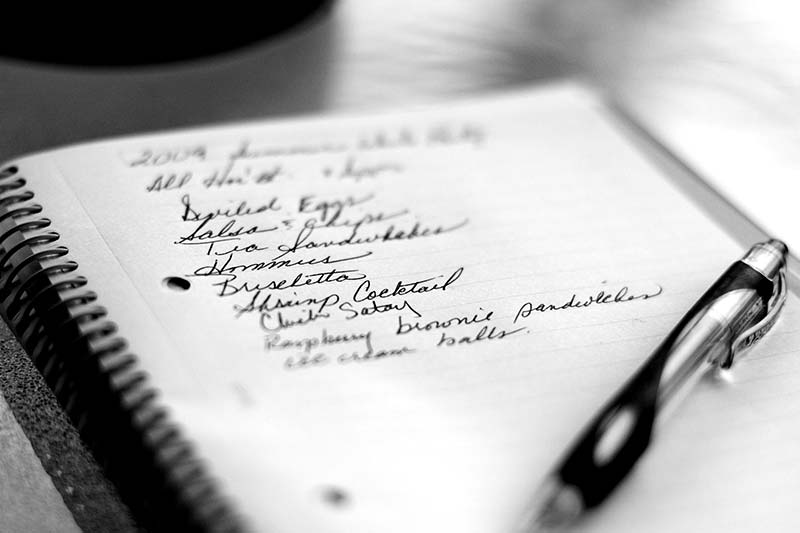 2009 Summer White Party
All Hor'd.
Deviled Eggs
Salsa & Chips
Tea Sandwhiches
Hommus
Bruschetta
Shrimp Cocktail
Satay
Raspburry brownie sandwiches
ice cream balls.